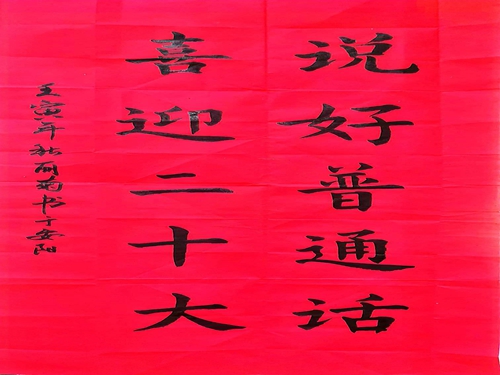 说好普通话
喜迎二十大
壬寅年秋丽鸽书于安阳